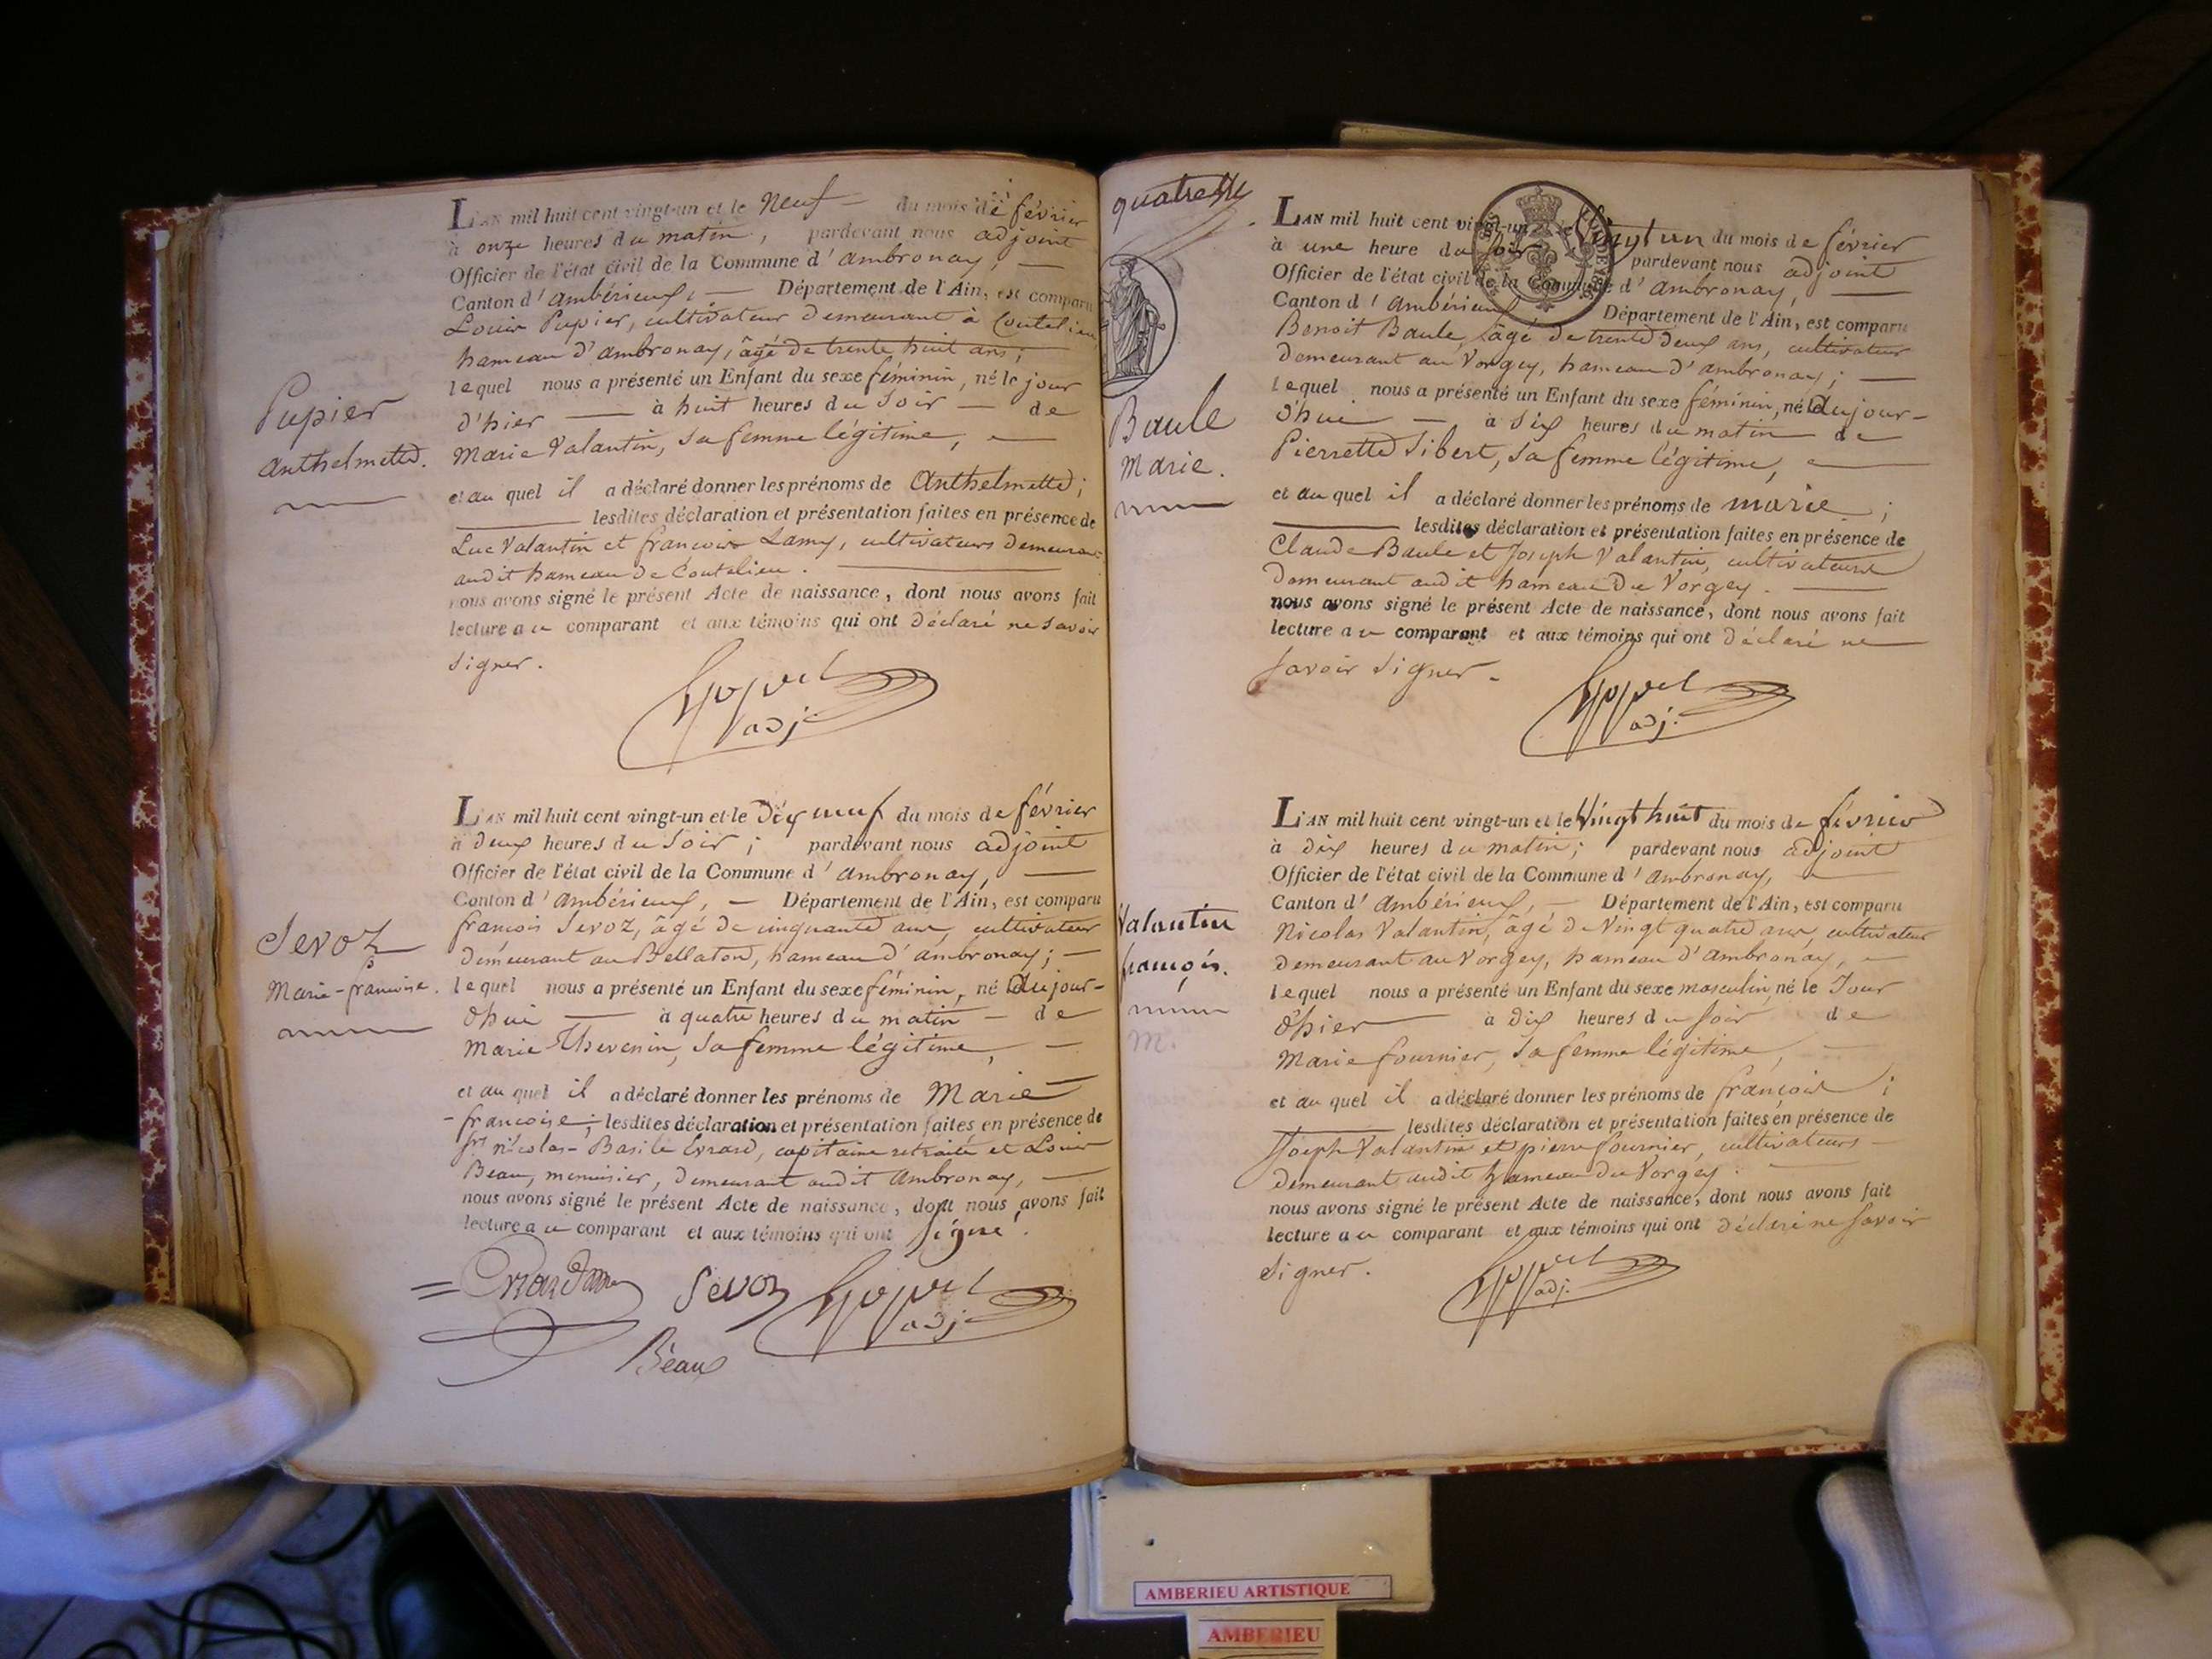 L'AN mil huit cent vingt-un et le neuf du mois de février
à onze heures du matin, pardevant nous adjoint
Officier de l'état civil de la Commune d'ambronay,
Canton d'ambérieux, Département de l'Ain, est comparu
Louis Pupier, cultivateur demeurant à Coutelieu,
hameau d'ambronay, âgé de trente huit ans;
lequel nous a présenté un Enfant du sexe féminin, né le jour
d'hier à huit heures du soir de
Marie Valantin, sa femme légitime,
et au quel il a déclaré donner les prénoms de Anthelmette;
lesdites déclaration et présentation faites en présence de
Luc Valantin et francois Lamy, cultivateurs demeurant
audit hameau de Coutelieu.
nous avons signé le présent Acte de naissance, dont nous avons fait
lecture au comparant et aux témoins qui ont déclaré ne savoir
signer.
adj.
Pupier
anthelmette.
L'AN mil huit cent vingt-un et le dix neuf du mois de février
à deux heures du soir; pardevant nous adjoint
Officier de l'état civil de la Commune d'ambronay,
Canton d'ambérieux, Département de l'Ain, est comparu
francois Sevoz, âgé de cinquante ans, cultivateur
demeurant au Bellaton, hameau d'ambronay;
lequel nous a présenté un Enfant du sexe féminin, né Dujour-
d'hui à quatre heures du matin de
Marie Thevenin, sa femme légitime,
et au quel il a déclaré donner les prénoms de Marie
-francoise; lesdites déclaration et présentation faites en présence de
sr. nicolas-Basile Evrard, capitaine retraité et Louis
Beau, menuisier, demeurant audit Ambronay,
nous avons signé le présent Acte de naissance, dont nous avons fait
lecture au comparant et aux témoins qui ont signé.
Sevoz
adj.
Beau
Sevoz
Marie-francoise.
quatre
L'AN mil huit cent vingt-un et le Vingt un du mois de février
à une heure du soir pardevant nous adjoint
Officier de l'état civil de la Commune d'ambronay,
Canton d'ambérieux Département de l'Ain, est comparu
Benoit Baule, âgé de trente deux ans, cultivateur
demeurant au Vorgey, hameau d'ambronay;
lequel nous a présenté un Enfant du sexe féminin, né Dujour-
d'hui à six heures du matin de
Pierrette Sibert, sa femme légitime,
et au quel il a déclaré donner les prénoms de marie;
lesdites déclaration et présentation faites en présence de
Claude Baule et Joseph Valantin, cultivateurs
demeurant audit hameau du Vorgey.
nous avons signé le présent Acte de naissance, dont nous avons fait
lecture au comparant et aux témoins qui ont déclaré ne
savoir signer.
adj.
Baule
Marie.
L'AN mil huit cent vingt-un et le Vingt huit du mois de février
à dix heures du matin; pardevant nous adjoint
Officier de l'état civil de la Commune d'ambronay,
Canton d'ambérieux, Département de l'Ain, est comparu
Nicolas Valantin, âgé de Vingt quatre ans, cultivateur
demeurant au Vorgey, hameau d'ambronay,
lequel nous a présenté un Enfant du sexe masculin, né le Jour
d'hier à dix heures du soir de
Marie fournier, sa femme légitime,
et au quel il a déclaré donner les prénoms de françois;
lesdites déclaration et présentation faites en présence de
Joseph Valantin et pierre fournier, cultivateurs
demeurant audit hameau du Vorgey.
nous avons signé le présent Acte de naissance, dont nous avons fait
lecture au comparant et aux témoins qui ont déclaré ne savoir
signer.
adj.
Valantin
françois.
M.
AMBERIEU ARTISTIQUE
AMBERIEU